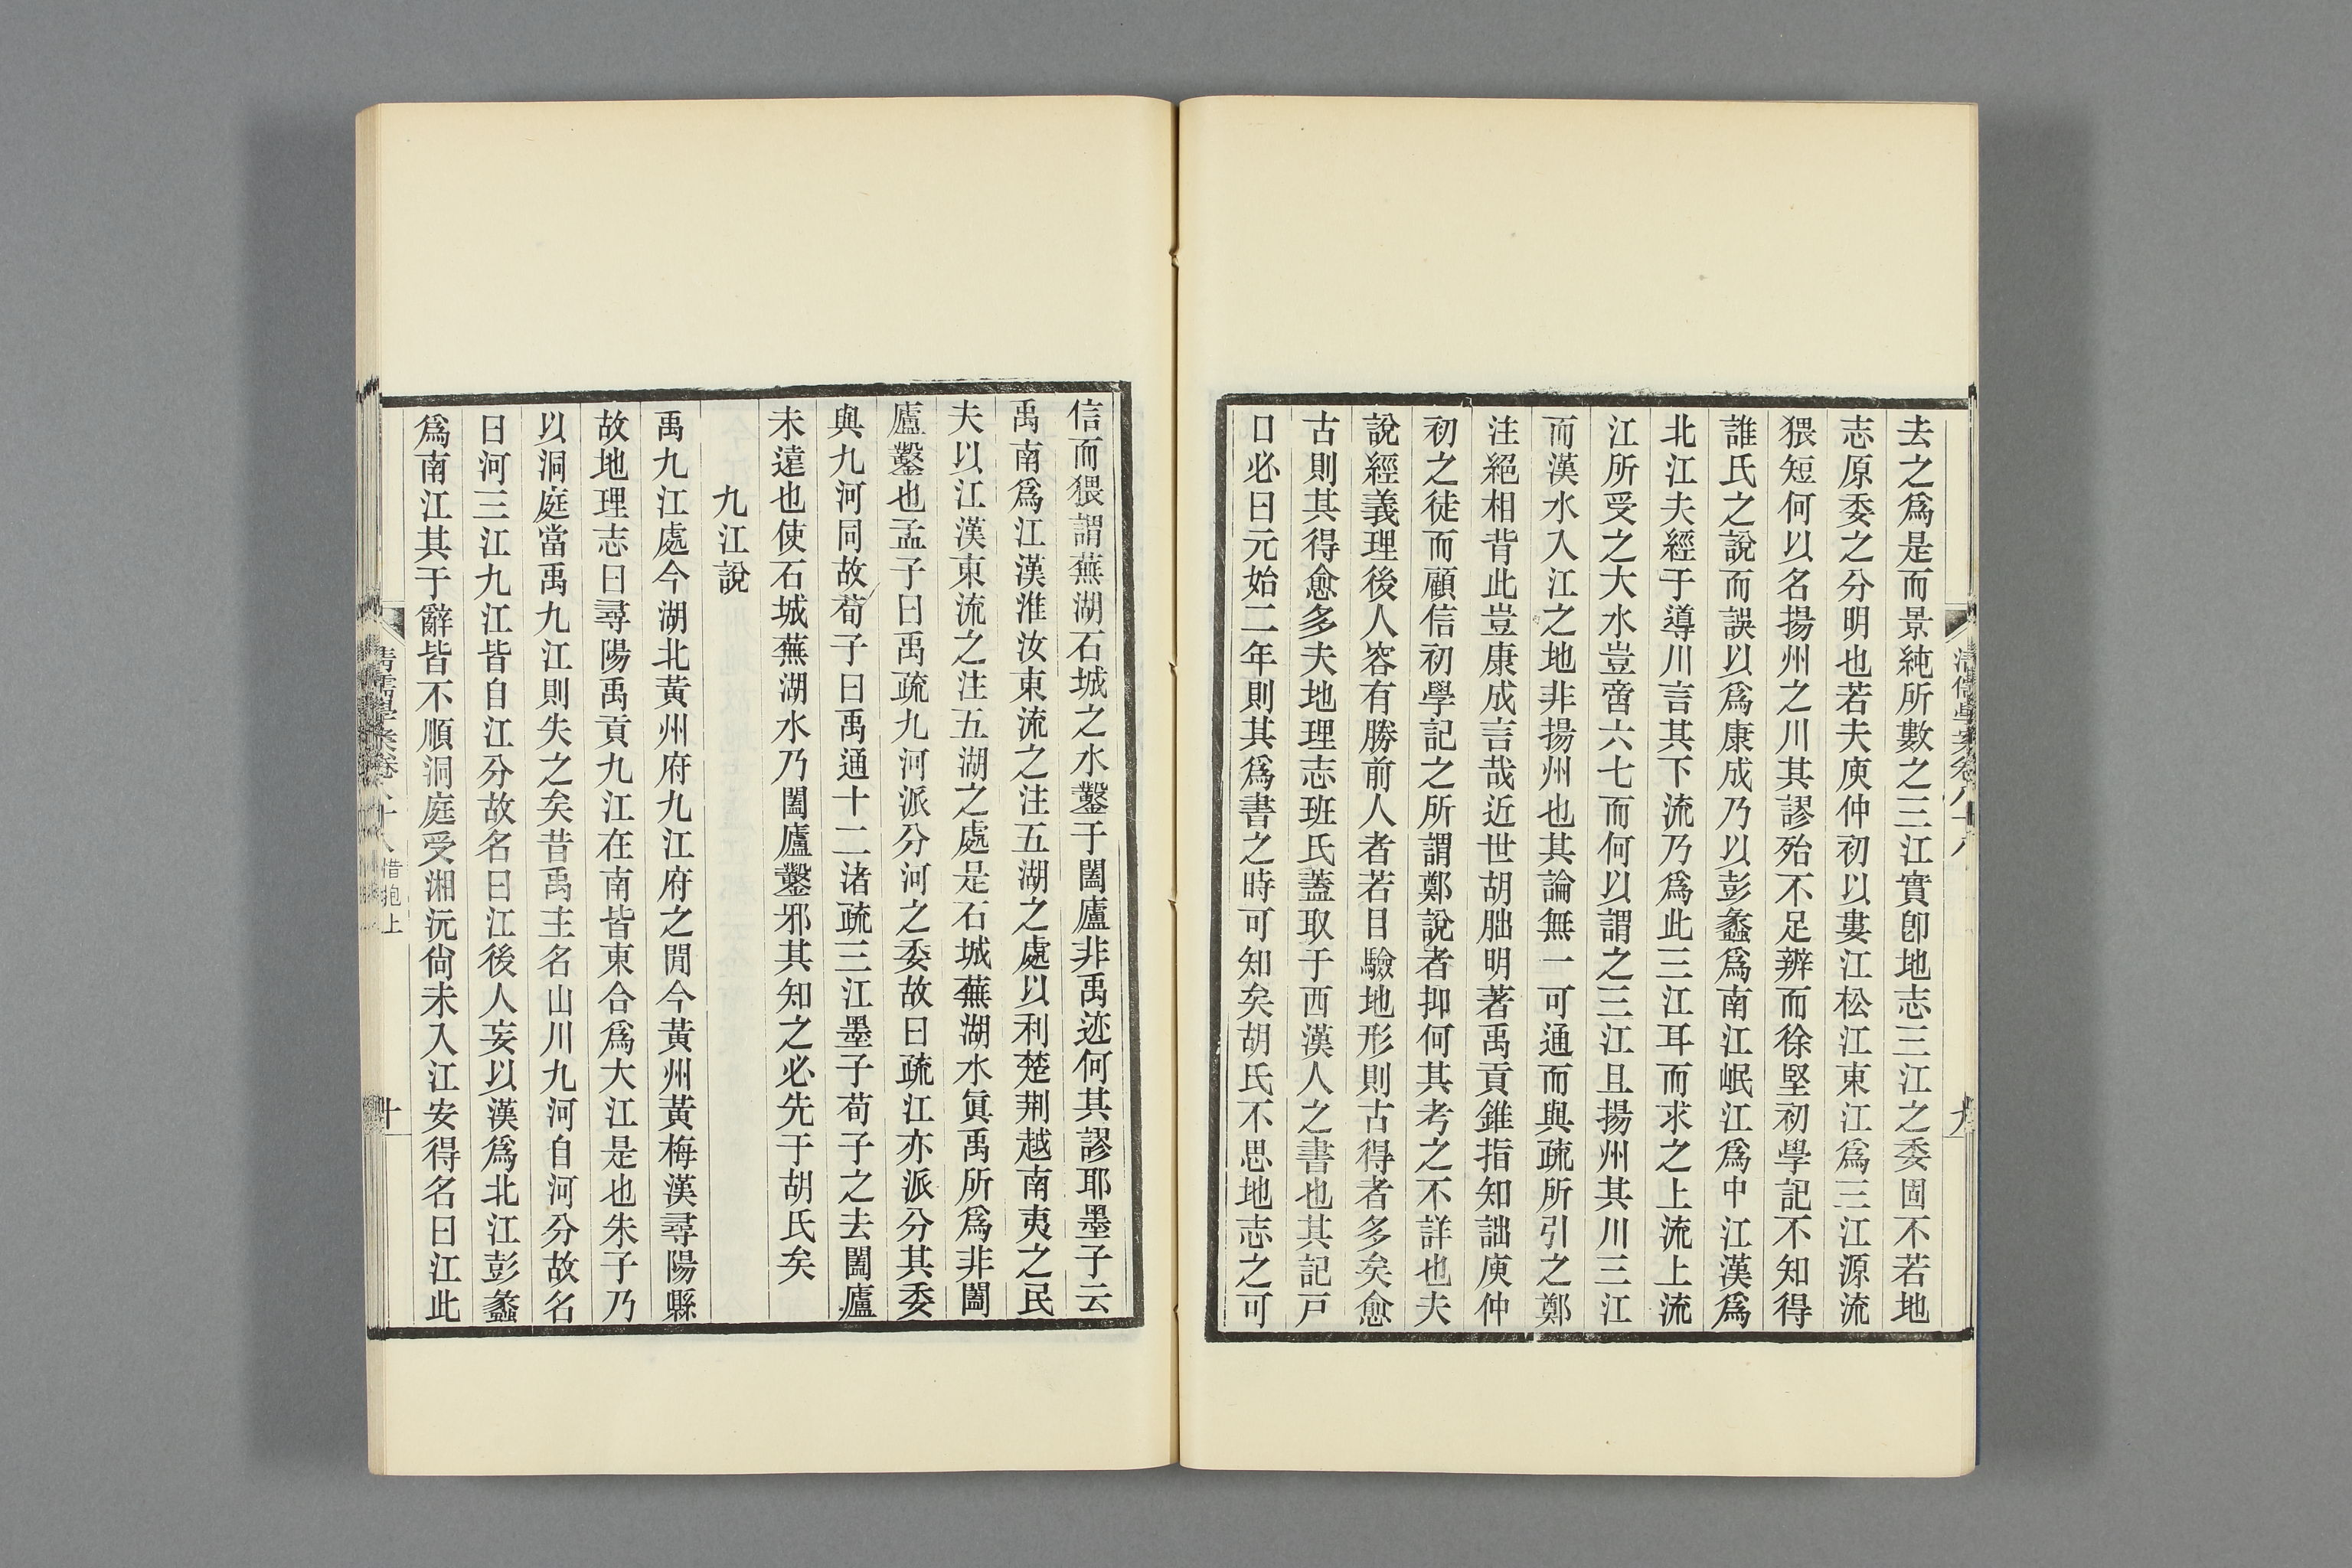 去之爲是而景純所數之三江實卽地志三江之委固不若地
志原委之分明也若夫庾仲初以婁江松江東江爲三江源流
猥短何以名揚州之川其謬殆不足辨而徐堅初學記不知得
誰氏之說而誤以爲康成乃以彭蠡爲南江岷江爲中江漢爲
北江夫經于導川言其下流乃爲此三江耳而求之上流上流
江所受之大水豈啻六七而何以謂之三江且揚州其川三江
而漢水入江之地非揚州也其論無一可通而與疏所引之鄭
注絕相背此豈康成言哉近世胡朏明著禹貢錐指知詘庾仲
初之徒而顧信初學記之所謂鄭說者抑何其考之不詳也夫
說經義理後人容有勝前人者若目驗地形則古得者多矣愈
古則其得愈多夫地理志班氏蓋取于西漢人之書也其記戸
口必曰元始二年則其爲書之時可知矣胡氏不思地志之可
清儒學案卷八十八
九
信而猥謂蕪湖石城之水鑿于闔廬非禹迹何其謬耶墨子云
禹南爲江漢淮汝東流之注五湖之處以利楚荆越南夷之民
夫以江漢東流之注五湖之處是石城蕪湖水眞禹所爲非闔
廬鑿也孟子曰禹疏九河派分河之委故曰疏江亦派分其委
與九河同故荀子曰禹通十二渚疏三江墨子荀子之去闔廬
未遠也使石城蕪湖水乃闔廬鑿邪其知之必先于胡氏矣
九江說
禹九江處今湖北黃州府九江府之閒今黃州黃梅漢尋陽縣
故地理志曰尋陽禹貢九江在南皆東合爲大江是也朱子乃
以洞庭當禹九江則失之矣昔禹主名山川九河自河分故名
曰河三江九江皆自江分故名曰江後人妄以漢爲北江彭蠡
爲南江其于辭皆不順洞庭受湘沅尙未入江安得名曰江此
清儒學案卷八十八 惜抱上
十